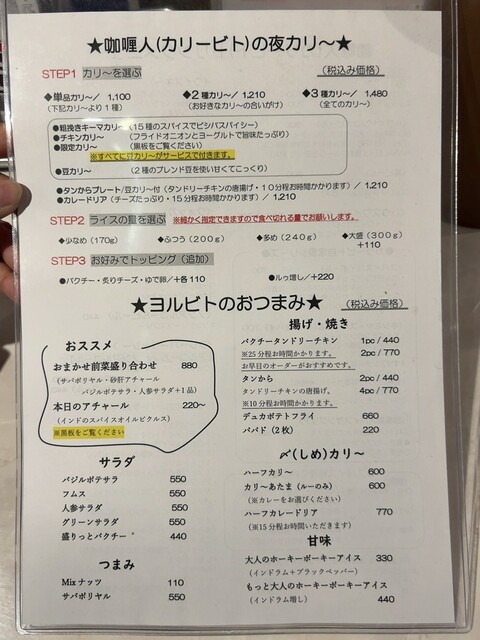 ★咖喱人(カリービト)の夜カリ～★
STEP1 カリ～を選ぶ (税込み価格)
◆単品カリ～／1,100 ◆2種カリ～／1,210 ◆3種カリ～／1,480
(下記カリ～より1種) (お好きなカリ～の合いがけ) (全てのカリ～)
●粗挽きキーマカリ～ (15種のスパイスでビシバスパイシー)
●チキンカリ～ (フライドオニオンとヨーグルトで旨味たっぷり)
●限定カリ～ (黒板をご覧ください)
※すべてに豆カリ～がサービスで付きます。
●豆カリ～ (2種のブレンド豆を使い甘くてこっくり)
◆タンからプレート/豆カリ～付(タンドリーチキンの唐揚げ・10分程お時間かかります)／1,210
◆カレードリア(チーズたっぷり・15分程お時間かかります)／1,210
STEP2 ライスの量を選ぶ ※細かく指定できますので食べ切れる量でお願いします。
◆少なめ(170g) ◆ふつう(200g) ◆多め(240g) ◆大盛(300g)
+110
STEP3 お好みでトッピング(追加)
●パクチー・炙りチーズ・ゆで卵／+各110 ●ルゥ増し／+220
★ヨルビトのおつまみ★ (税込み価格)
おススメ
おまかせ前菜盛り合わせ 880
(サバポリヤル・砂肝アチャール
バジルポテサラ・人参サラダ+1品)
本日のアチャール 220～
(インドのスパイスオイルピクルス)
※黒板をご覧ください
サラダ
バジルポテサラ 550
フムス 550
人参サラダ 550
グリーンサラダ 550
盛りっとパクチー 440
つまみ
Mixナッツ 110
サバポリヤル 550
揚げ・焼き
パクチータンドリーチキン 1pc / 440
※25分程お時間かかります。 2pc / 770
お早目のオーダーがおすすめです。
タンから 2pc / 440
タンドリーチキンの唐揚げ。 4pc / 770
※10分程お時間かかります。
デュカポテトフライ 660
パパド(2枚) 220
〆(しめ)カリ～
ハーフカリ～ 600
カリ～あたま(ルーのみ) 600
(※カレーをお選びください)
ハーフカレードリア 770
(※15分程お時間いただきます)
甘味
大人のホーキーポーキーアイス 330
(インドラム+ブラックペッパー)
もっと大人のホーキーポーキーアイス
(インドラム増し) 440